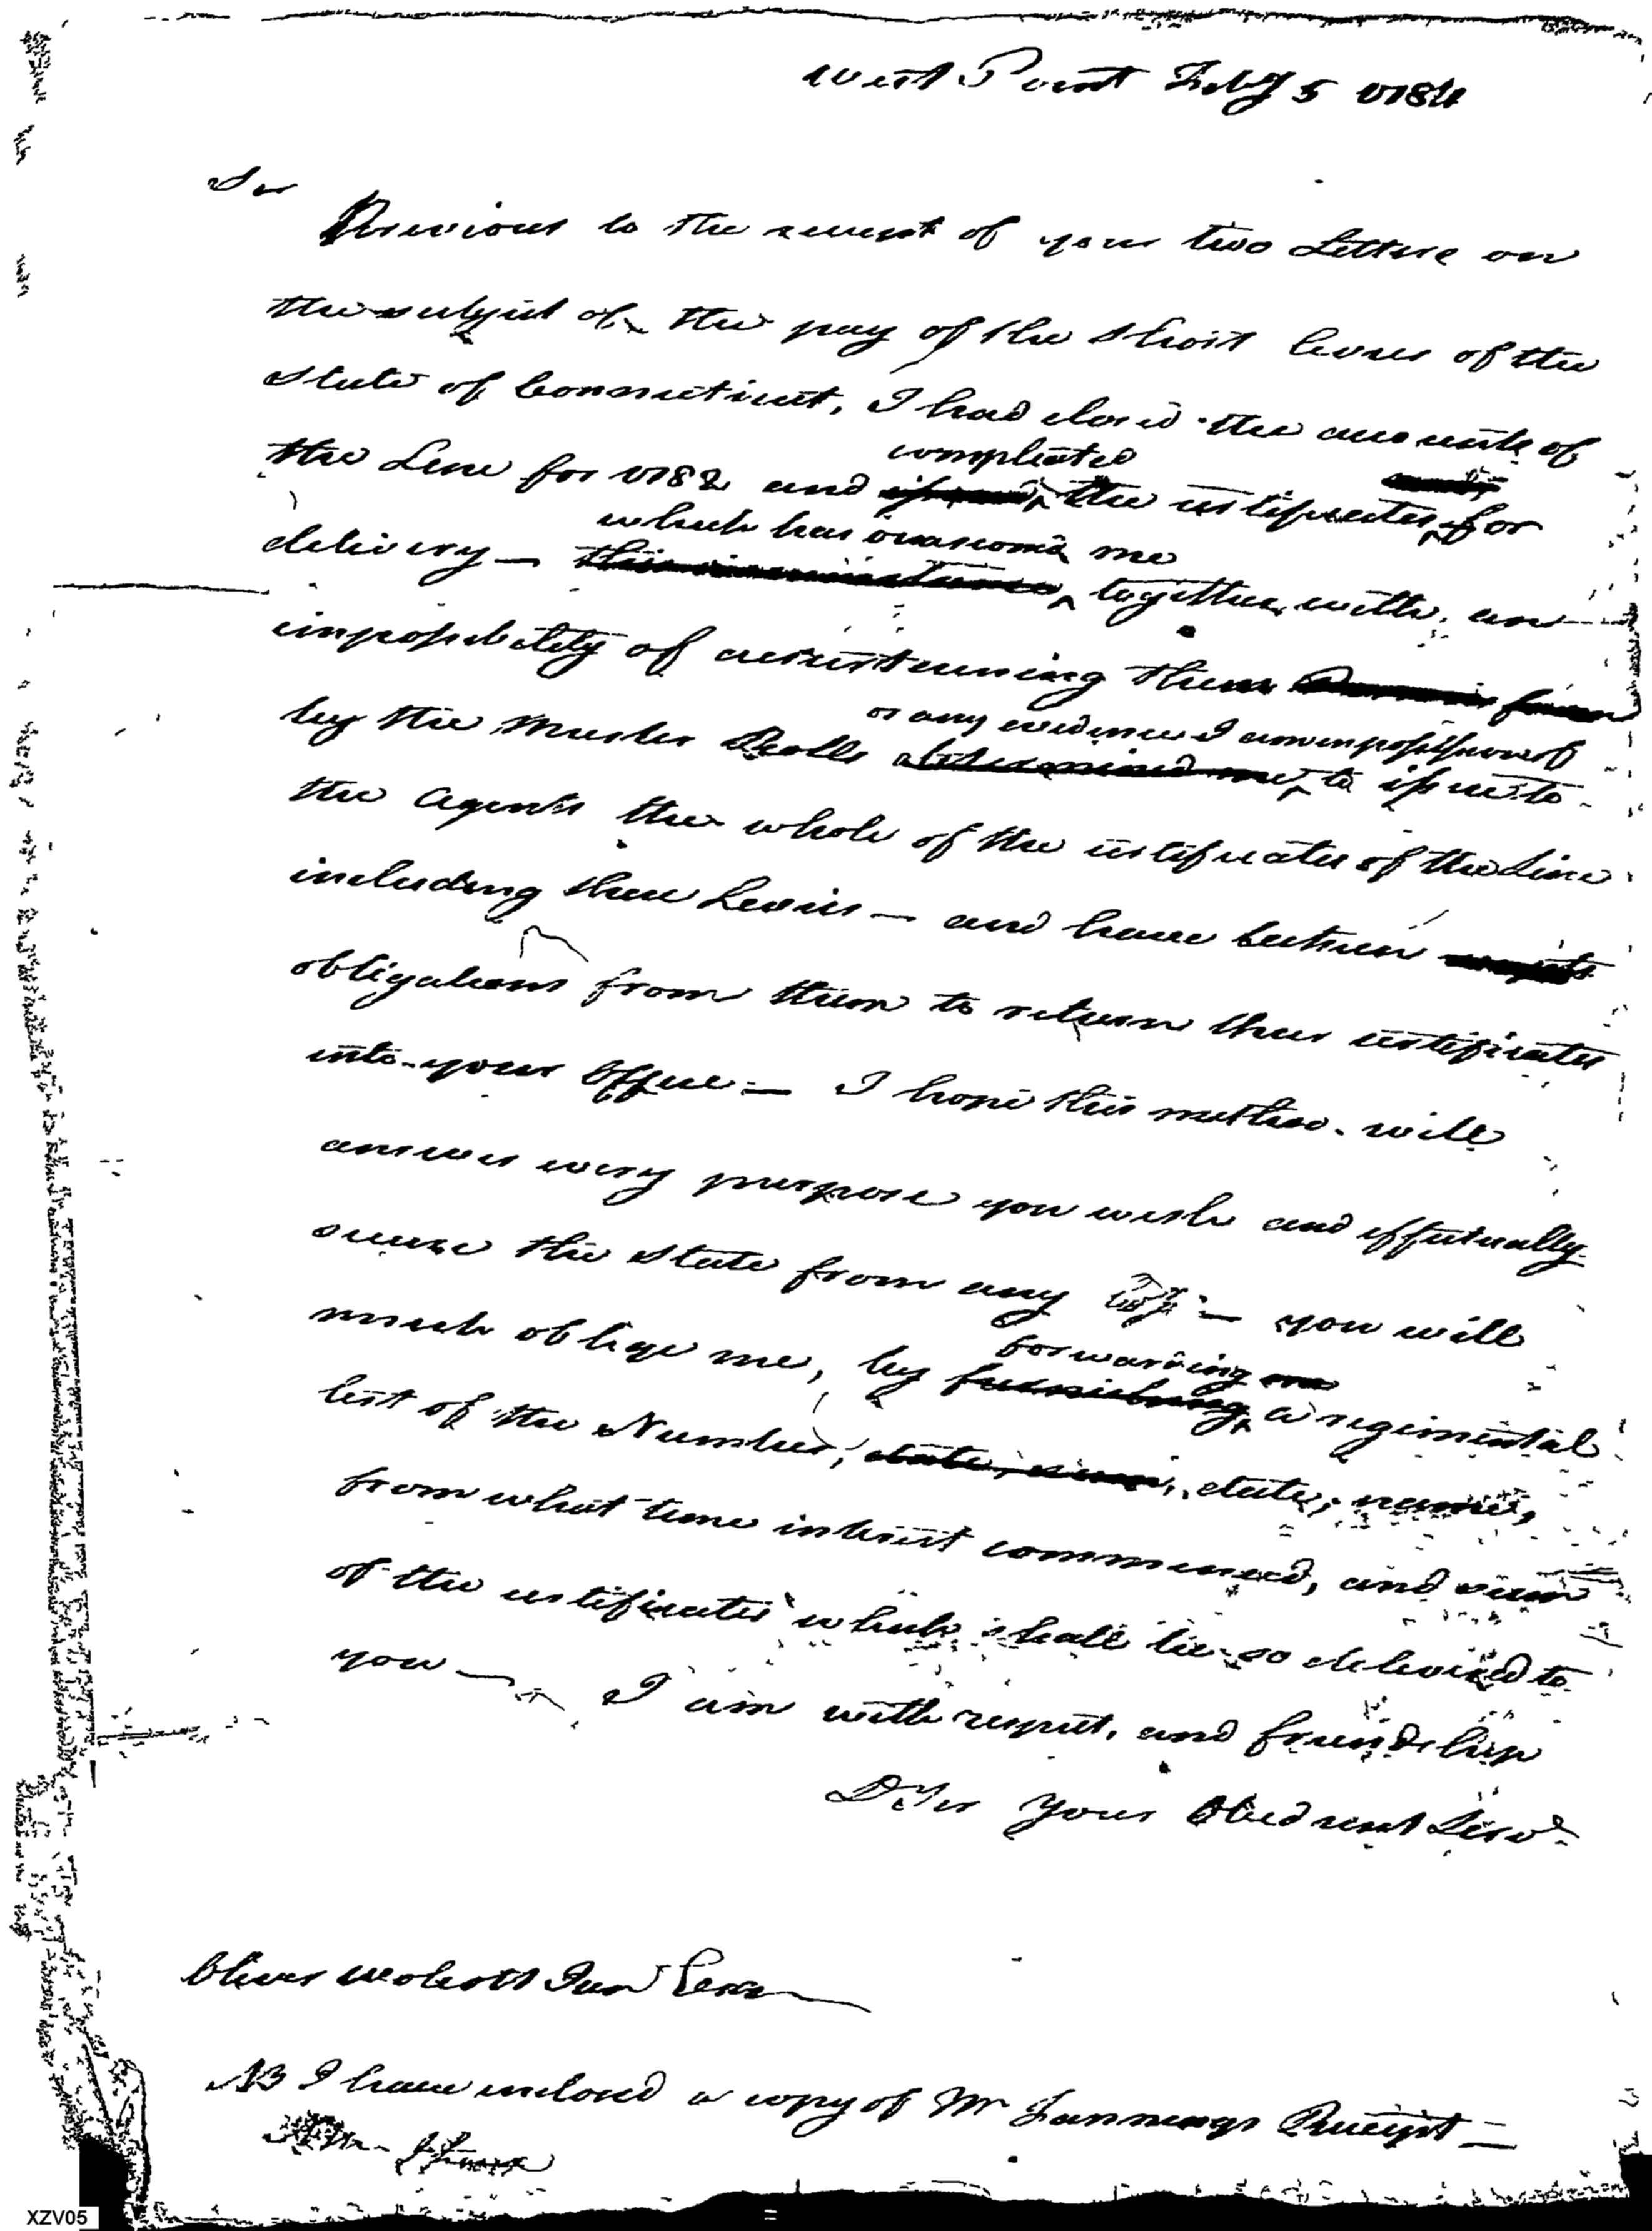 West Point Feby 5 1784
Sir
Previous to the receipt of your two Letters on
the subject of the pay of the short levies of the
State of Connecticut, I had closed the accounts of
compleated
the Line for 1782 and issued, the certificates for
which has occasioned me
delivery — this circumstance, together with, an
impossibility of ascertaining them from
or any evidence I am in possession of
by the Muster Rolls determined me, to issue to
the Agents the whole of the certificates of the Line
including these Levies — and have taken receipts
obligations from them to return their certificates
into your Office — I hope this method will
answer every purpose you wish and effectually
secure the State from any — you will
forwarding
much oblige me, by furnishing a regimental
list of the Number, date, sum, date, name,
from what time interest commenced, and sum
of the certificates which shall be so delivered to
you — I am with respect, and friendship
D Sir Your Obedient Servt
Oliver Wolcott Junr Esqr
NB I have inclosed a copy of Mr Jannings Receipt —
XZV05